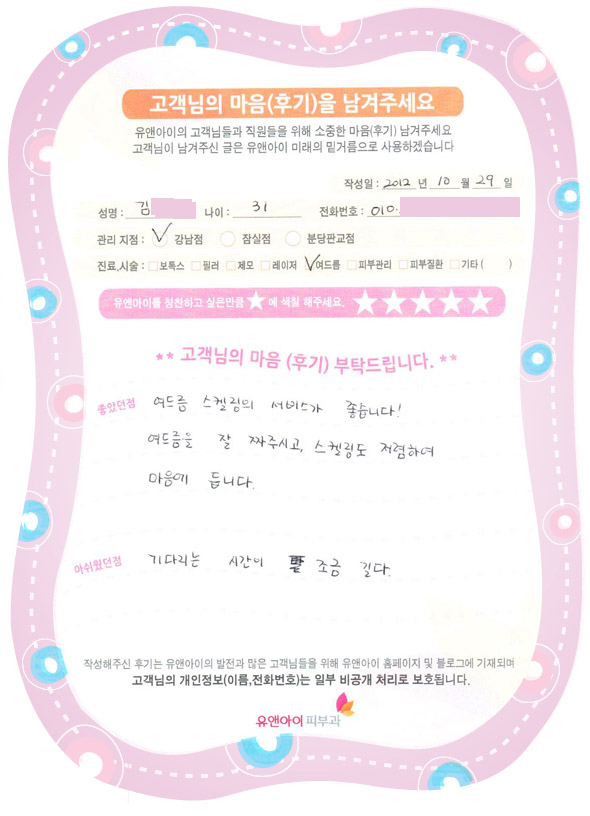 고객님의 마음(후기)을 남겨주세요
유앤아이의 고객님들과 직원들을 위해 소중한 마음(후기) 남겨주세요
고객님이 남겨주신 글은 유앤아이 미래의 밑거름으로 사용하겠습니다
작성일 : 2012 년 10 월 29 일
성명 : 김 나이 : 31 전화번호 : 010.
관리 지점 : 강남점 잠실점 분당판교점
진료,시술 : 보톡스 필러 제모 레이저 여드름 피부관리 피부질환 기타 ( )
유앤아이를 칭찬하고 싶은만큼 ★에 색칠 해주세요. ★★★★★
** 고객님의 마음 (후기) 부탁드립니다. **
좋았던점 여드름 스켈링의 서비스가 좋습니다!
여드름을 잘 짜주시고, 스켈링도 저렴하여
마음에 듭니다.
아쉬웠던점 기다리는 시간이 조금 길다.
작성해주신 후기는 유앤아이의 발전과 많은 고객님들을 위해 유앤아이 홈페이지 및 블로그에 기재되며
고객님의 개인정보(이름,전화번호)는 일부 비공개 처리로 보호됩니다.
유앤아이 피부과